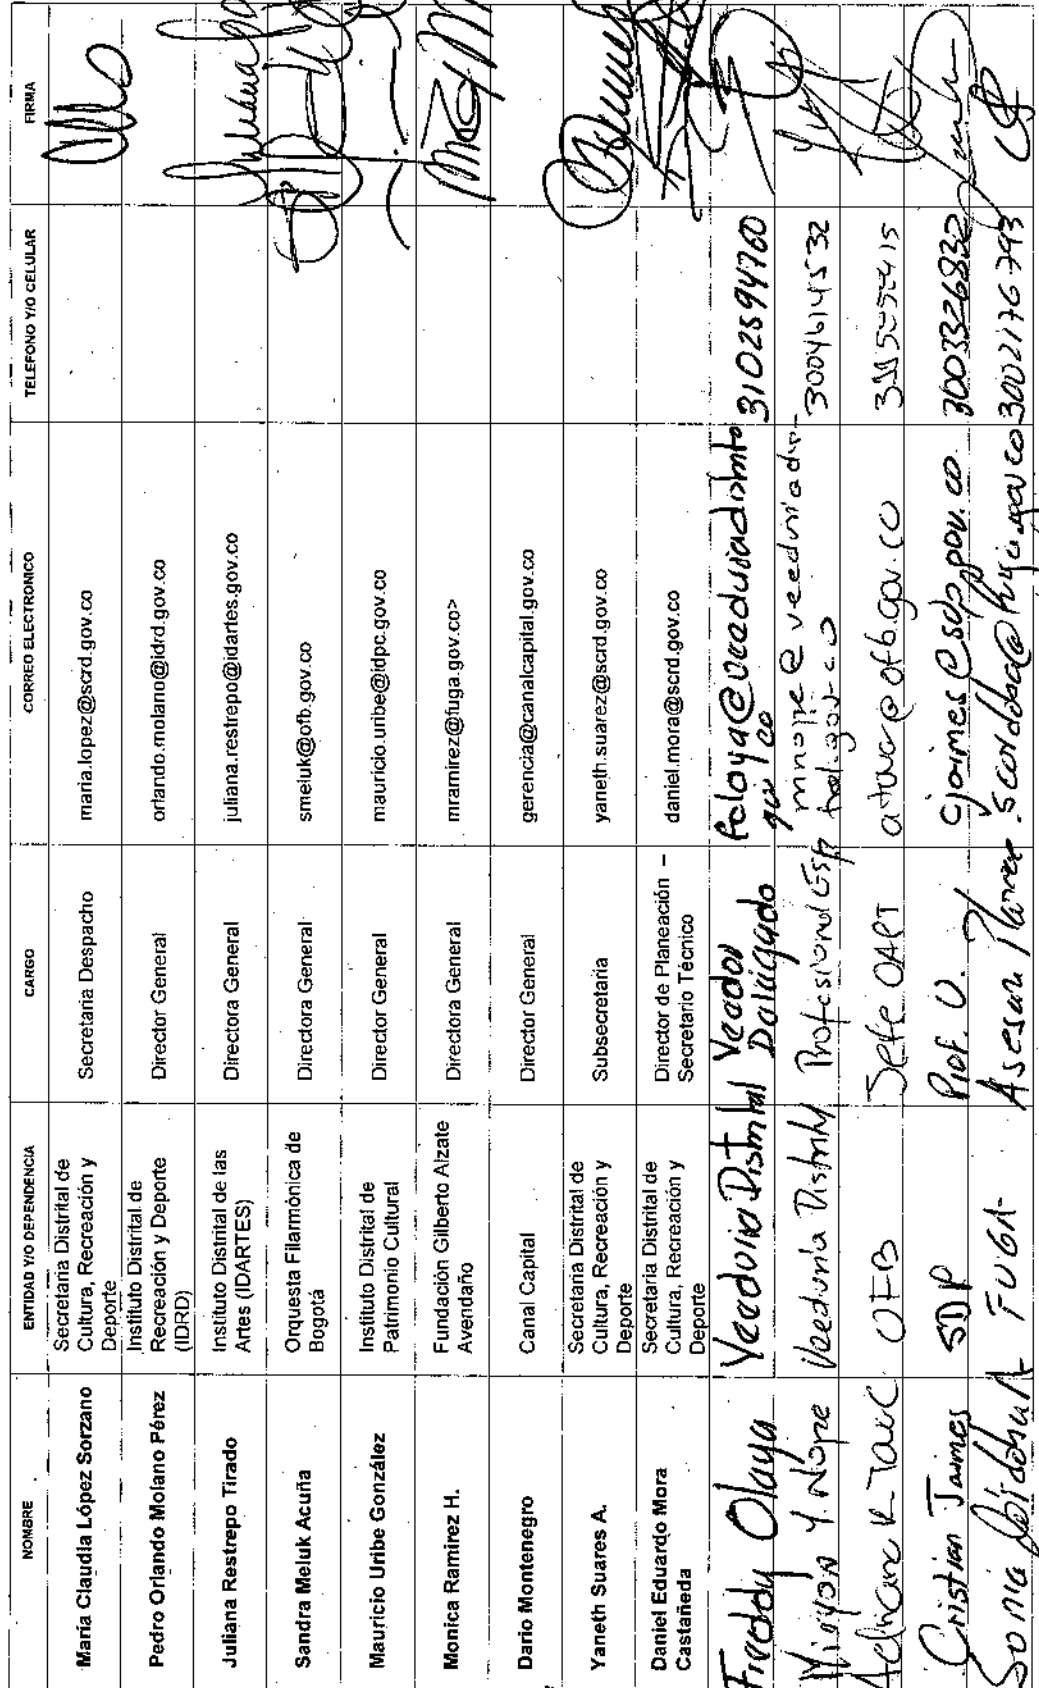 NOMBRE ENTIDAD Y/O DEPENDENCIA CARGO CORREO ELECTRONICO TELEFONO Y/O CELULAR FIRMA
María Claudia López Sorzano Secretaria Distrital de Cultura, Recreación y Deporte Secretaria Despacho maria.lopez@scrd.gov.co
Pedro Orlando Molano Pérez Instituto Distrital de Recreación y Deporte (IDRD) Director General orlando.molano@idrd.gov.co
Juliana Restrepo Tirado Instituto Distrital de las Artes (IDARTES) Directora General juliana.restrepo@idartes.gov.co
Sandra Meluk Acuña Orquesta Filarmónica de Bogotá Directora General smeluk@ofb.gov.co
Mauricio Uribe González Instituto Distrital de Patrimonio Cultural Director General mauricio.uribe@idpc.gov.co
Monica Ramirez H. Fundación Gilberto Alzate Avendaño Directora General mramirez@fuga.gov.co>
Dario Montenegro Canal Capital Director General gerencia@canalcapital.gov.co
Yaneth Suares A. Secretaria Distrital de Cultura, Recreación y Deporte Subsecretaria yaneth.suarez@scrd.gov.co
Daniel Eduardo Mora Castañeda Secretaria Distrital de Cultura, Recreación y Deporte Director de Planeación – Secretario Técnico daniel.mora@scrd.gov.co
Freddy Olaya Veeduria Distrital Veedor Delegado 3102594760
Y. Nope Veeduría Distrital Profesional Esp 3004614532
OFB Jefe OAPI @ofb.gov.co
Cristian Jaimes SDP Prof. U. cjaimes@sdp.gov.co 3003326832
Sonia FUGA 3002176793